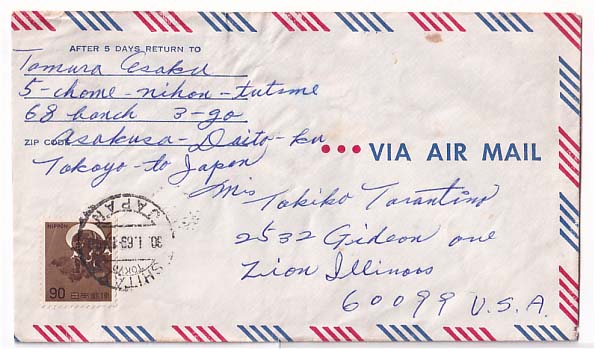 AFTER 5 DAYS RETURN TO
Tamura Asaku
5-chome-nihon-tutsme
68 banch 3-go
ZIP CODE Asakusa-Daito-ku
Tokoyo-to Japan
••• VIA AIR MAIL
Mis Tokiko Tarantino
2532 Gideon ave
Zion Illinois
60099 U.S.A.
JAPAN
30.1.69
SHITA
TOKYO
NIPPON
90 日本郵便